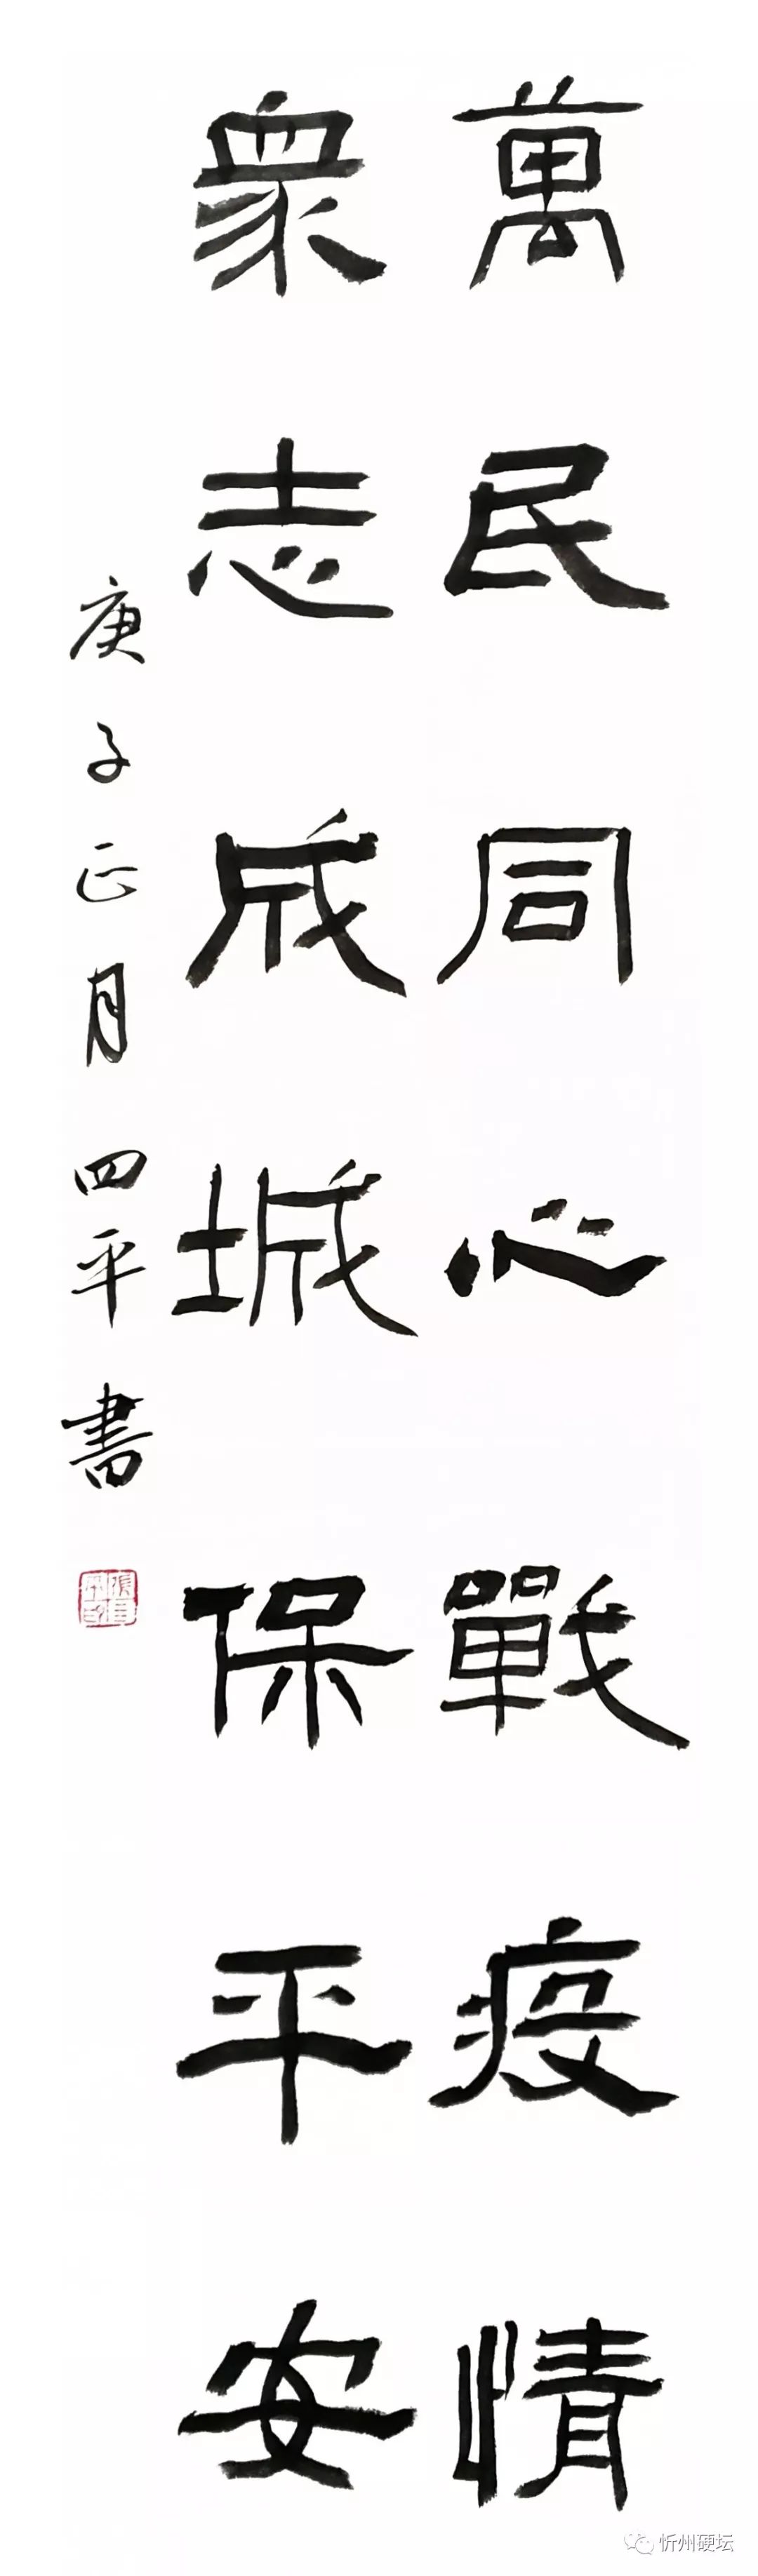 萬民同心戰疫情
衆志成城保平安
庚子正月四平書
忻州硬坛